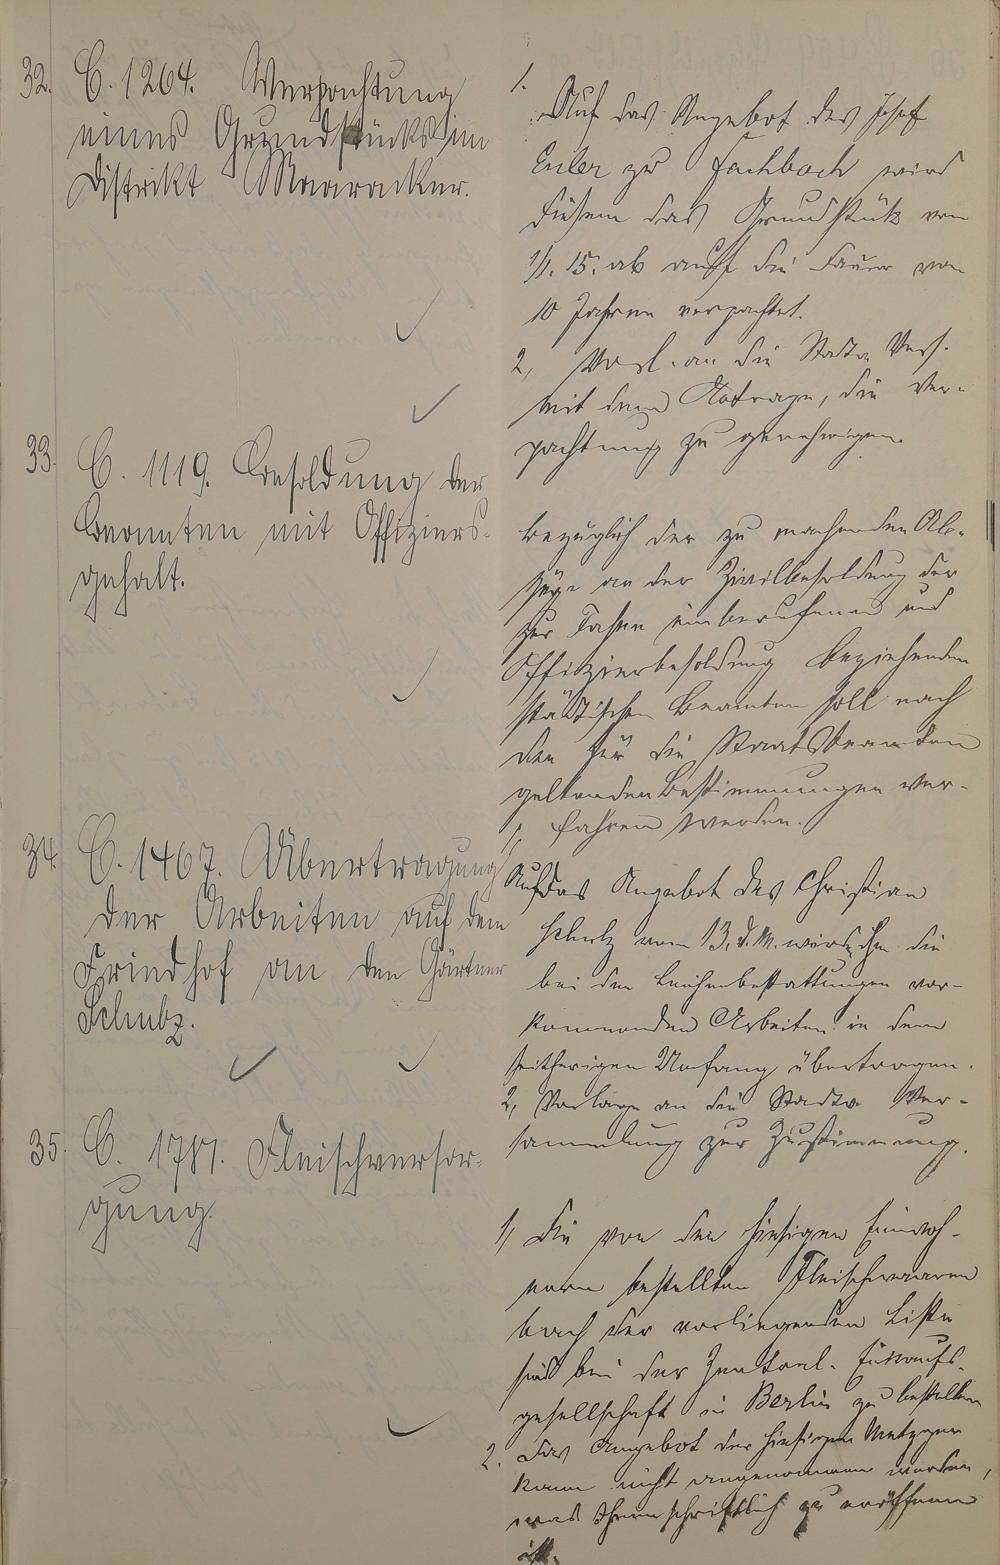 32. C. 1264. Verpachtung
eines Grundstücks im
Distrikt Maaracker.
1.
Auf das Angebot des Josef
Euler zu Fachbach wird
diesem das Grundstück von
1/1. 15. ab auf die Dauer von
10 Jahren verpachtet.
2, Vorl. an die Stadtv. Vers.
mit dem Antrage, die Ver-
pachtung zu genehmigen.
33. C. 1119. Besoldung der
Beamten mit Offiziers-
gehalt.
Bezüglich der zu machenden Ab-
züge an der Zivilbesoldung der
zur Fahne einberufenen und
Offizierbesoldung beziehenden
städtischen Beamten soll nach
den für die Staatsbeamten
geltenden Bestimmungen ver-
fahren werden.
34. C. 1467. Übertragung
der Arbeiten auf dem
Friedhof an den Gärtner
Schulz.
1,
Auf das Angebot des Christian
Schulz vom 13. d. M. wird ihm die
bei den Leichenbestattungen vor-
kommenden Arbeiten in dem
seitherigen Umfang übertragen.
2, Vorlage an die Stadtv. Ver-
sammlung zur Zustimmung.
35. C. 1787. Fleischversor-
gung.
1, Die von den hiesigen Einwoh-
nern bestellten Fleischwaaren
nach der vorliegenden Liste
sind bei der Zentral-Einkaufs-
gesellschaft in Berlin zu bestellen
2. Das Angebot der hiesigen Metzger
kann nicht angenommen werden,
was Ihnen schriftlich zu eröffnen
ist.